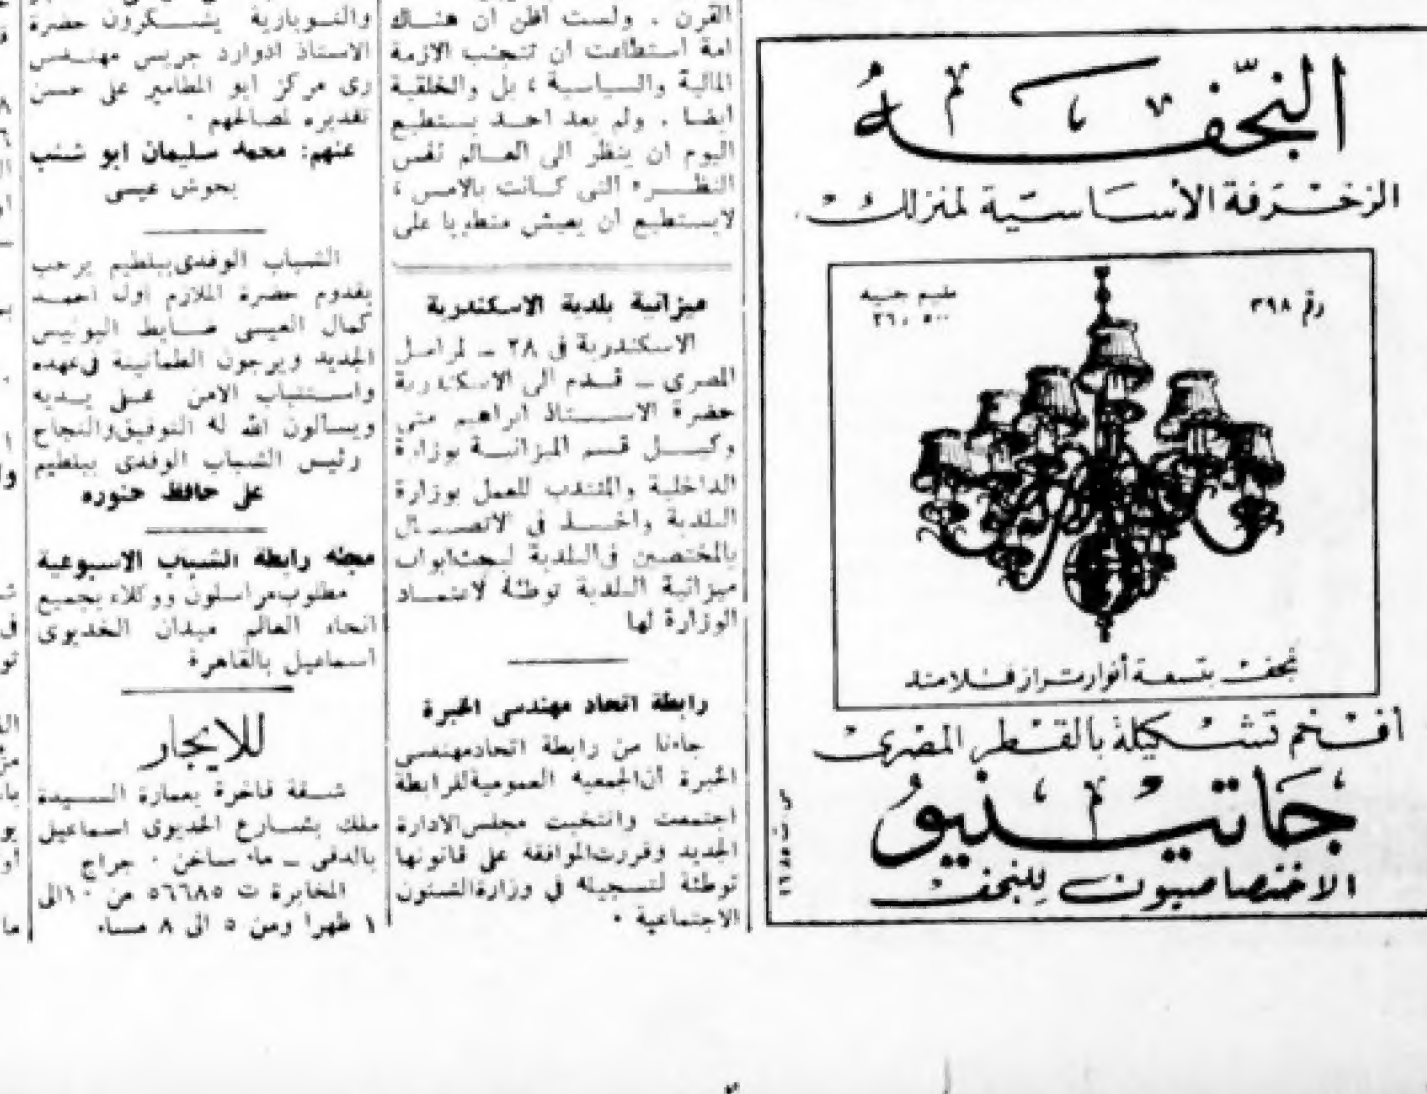 النجفه
الزخرفة الأساسية لمنزلك.
رقم ٣٩٨
مليم جنيه
٢٦,٥٠٠
نجف بتسعة أنوار طراز فلامند
أفخم تشكيلة بالقطر المصرى
جاتينيو
الاختصاصيون للنجف
القرن . ولست اظن ان هناك
امة استطاعت ان تتجنب الازمة
المالية والسياسية ، بل والخلقية
ايضا . ولم يعد احد يستطيع
اليوم ان ينظر الى العالم نفس
النظرة التى كانت بالامس ،
لايستطيع ان يعيش منطويا على
ميزانية بلدية الاسكندرية
الاسكندرية فى ٢٨ ــ لمراسل
المصرى ــ قدم الى الاسكندرية
حضرة الاستاذ ابراهيم متى
وكيل قسم الميزانية بوزارة
الداخلية والمنتدب للعمل بوزارة
البلدية واخذ فى الاتصال
بالمختصين فى البلدية لبحث ابواب
ميزانية البلدية توطئة لاعتماد
الوزارة لها
رابطة اتحاد مهندسى الخبرة
جاءنا من رابطة اتحاد مهندسى
الخبرة أن الجمعيه العمومية للرابطة
اجتمعت وانتخبت مجلس الادارة
الجديد وقررت الموافقة على قانونها
توطئة لتسجيله فى وزارة الشئون
الاجتماعية .
والنوبارية يشكرون حضرة
الاستاذ ادوارد جريس مهندس
رى مركز ابو المطامير على حسن
تقديره لمصالحهم .
عنهم: محمد سليمان ابو شنب
بحوش عيسى
الشباب الوفدى ببلطيم يرحب
بقدوم حضرة الملازم اول احمد
كمال العيسى ضابط البوليس
الجديد ويرجون الطمانينة فى عهده
واستتباب الامن على يديه
ويسألون الله له التوفيق والنجاح
رئيس الشباب الوفدى ببلطيم
على حافظ حنوره
مجلة رابطة الشباب الاسبوعية
مطلوب مراسلون ووكلاء بجميع
انحاء العالم ميدان الخديوى
اسماعيل بالقاهرة
للايجار
شقة فاخرة بعمارة السيدة
ملك بشارع الخديوى اسماعيل
بالدقى ــ ماء ساخن . جراج
المخابرة ت ٥٦٦٨٥ من ١٠ الى
١ ظهرا ومن ٥ الى ٨ مساء.